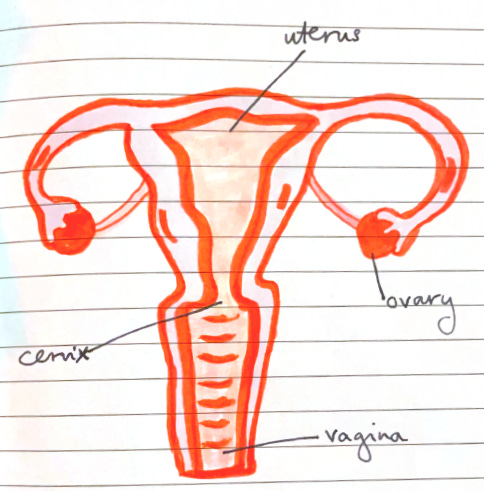 uterus
ovary
cervix
vagina